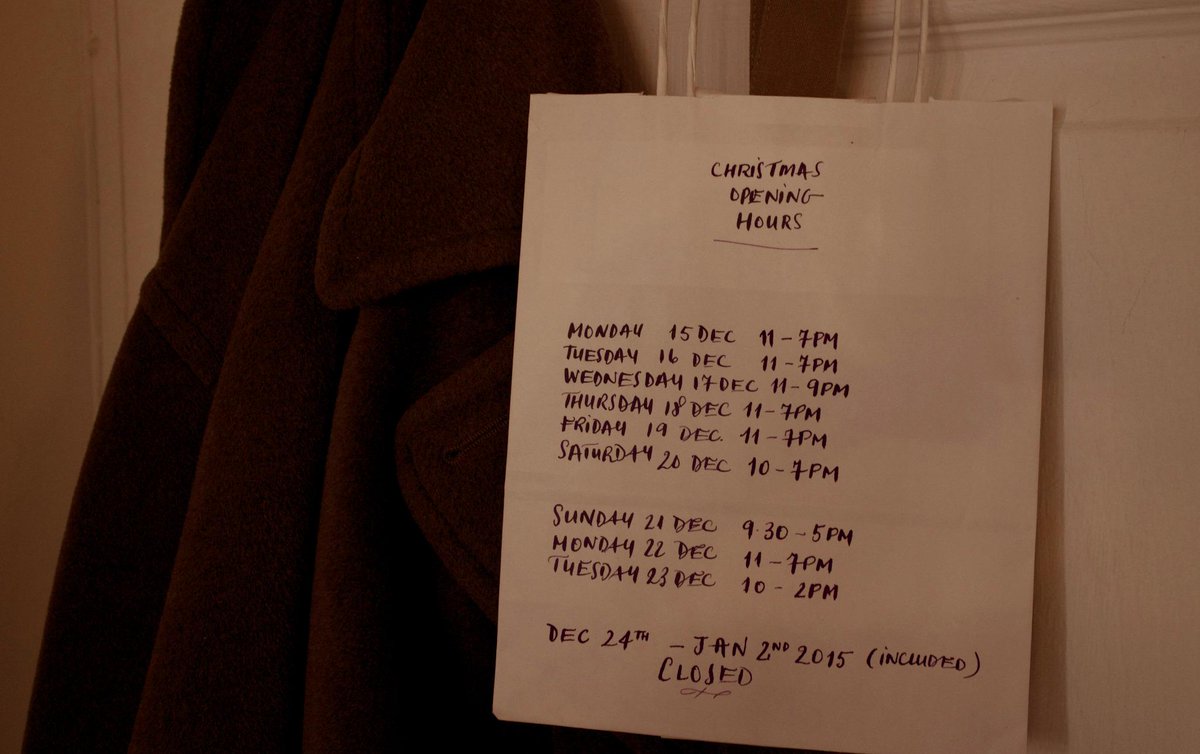 CHRISTMAS
OPENING
HOURS
MONDAY 15 DEC 11 - 7PM
TUESDAY 16 DEC 11 - 7PM
WEDNESDAY 17 DEC 11 - 9PM
THURSDAY 18 DEC 11 - 7PM
FRIDAY 19 DEC. 11 - 7PM
SATURDAY 20 DEC 10 - 7PM
SUNDAY 21 DEC 9.30 - 5PM
MONDAY 22 DEC 11 - 7PM
TUESDAY 23 DEC 10 - 2PM
DEC 24TH - JAN 2ND 2015 (INCLUDED)
CLOSED